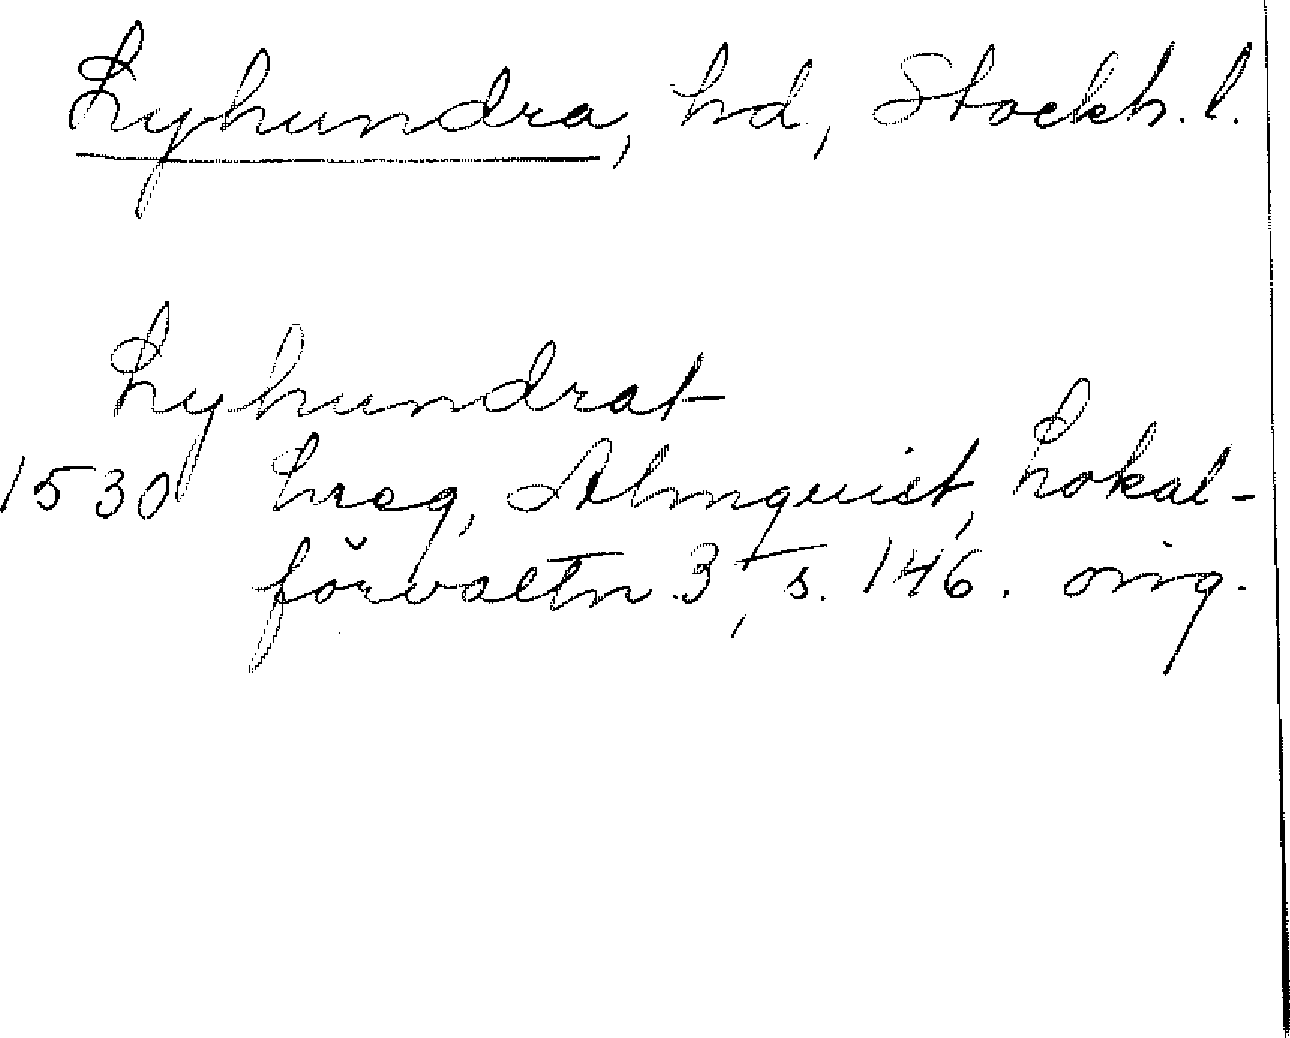 Lyhundra, hd, Stockh. l.
Lyhundrat
1530 hreg, Almquist, Lokal-
förvaltn. 3, s. 146. orig.